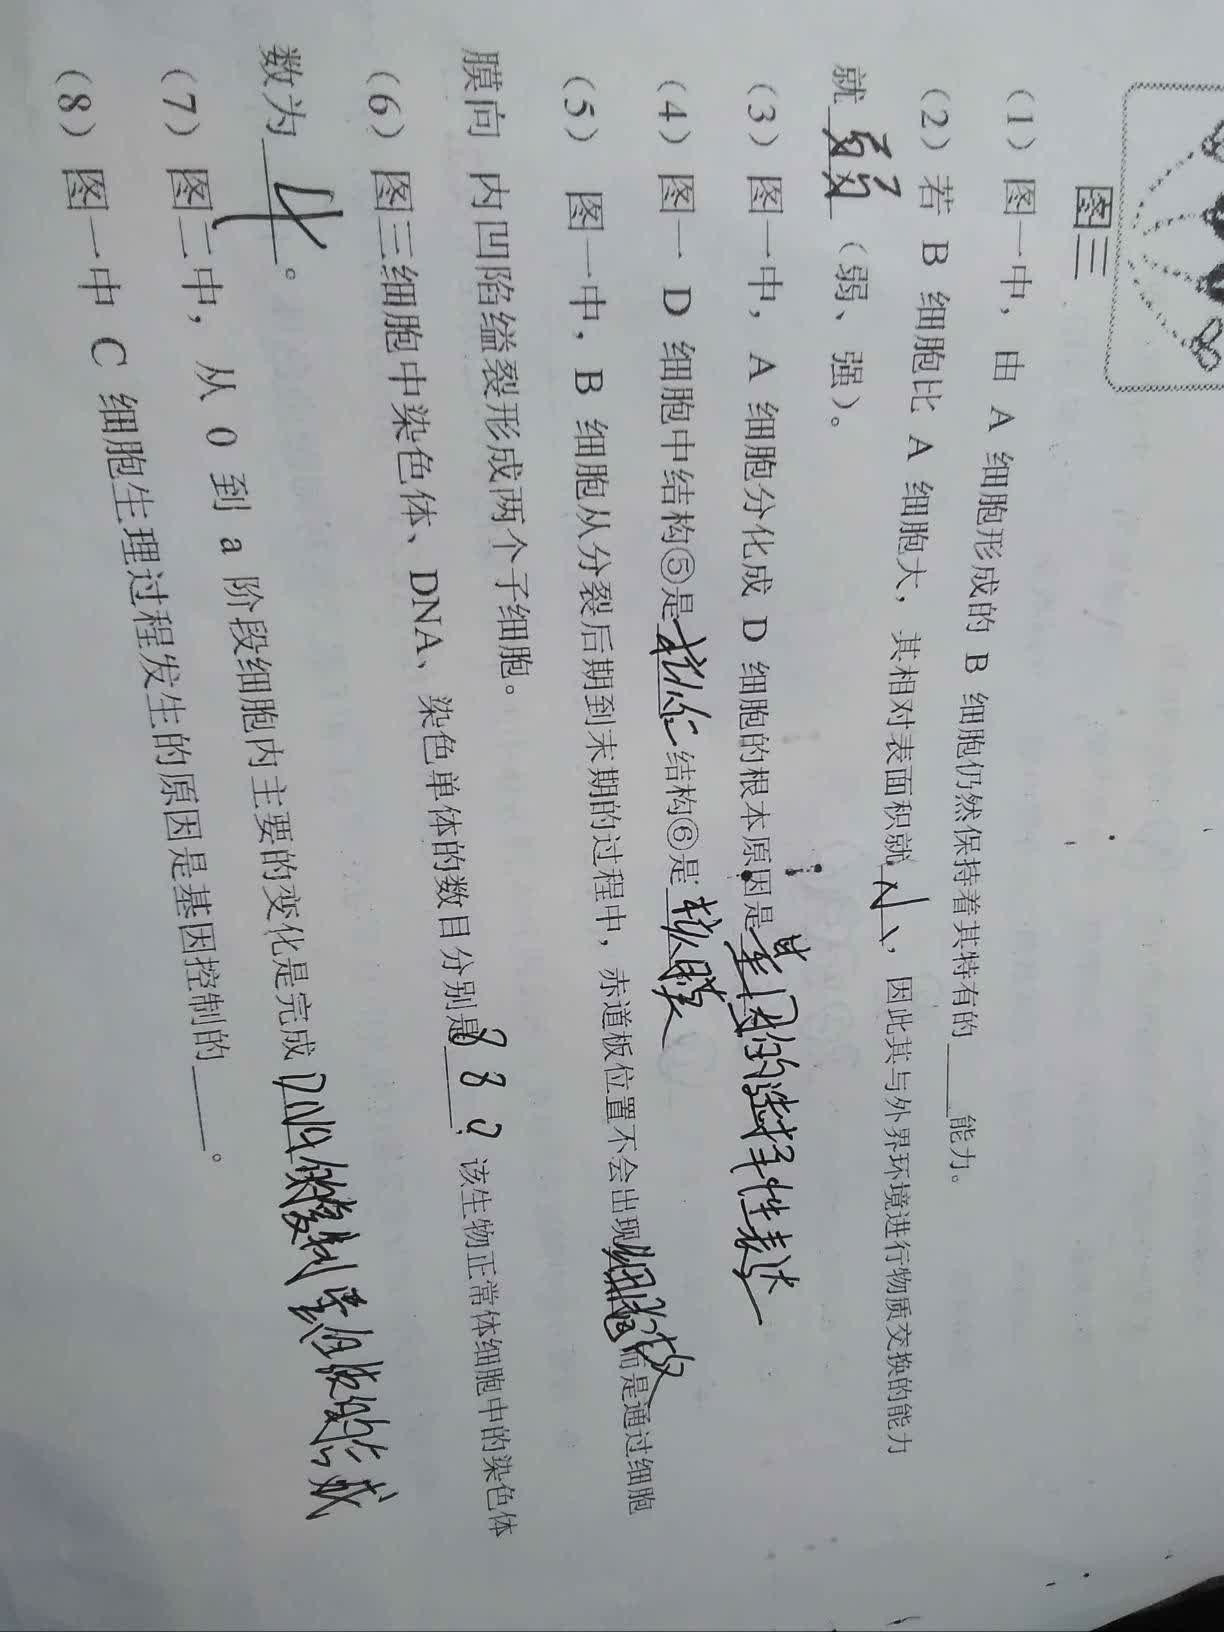 图三
(1) 图一中，由 A 细胞形成的 B 细胞仍然保持着其特有的____能力。
(2) 若 B 细胞比 A 细胞大，其相对表面积就小，因此其与外界环境进行物质交换的能力
就弱（弱、强）。
(3) 图一中，A 细胞分化成 D 细胞的根本原因是基因的选择性表达
(4) 图一 D 细胞中结构⑤是核仁 结构⑥是核膜
(5) 图一中，B 细胞从分裂后期到末期的过程中，赤道板位置不会出现细胞板而是通过细胞
膜向 内凹陷缢裂形成两个子细胞。
(6) 图三细胞中染色体、DNA、染色单体的数目分别是8 8 0，该生物正常体细胞中的染色体
数为4。
(7) 图二中，从 0 到 a 阶段细胞内主要的变化是完成DNA的复制
(8) 图一中 C 细胞生理过程发生的原因是基因控制的____。